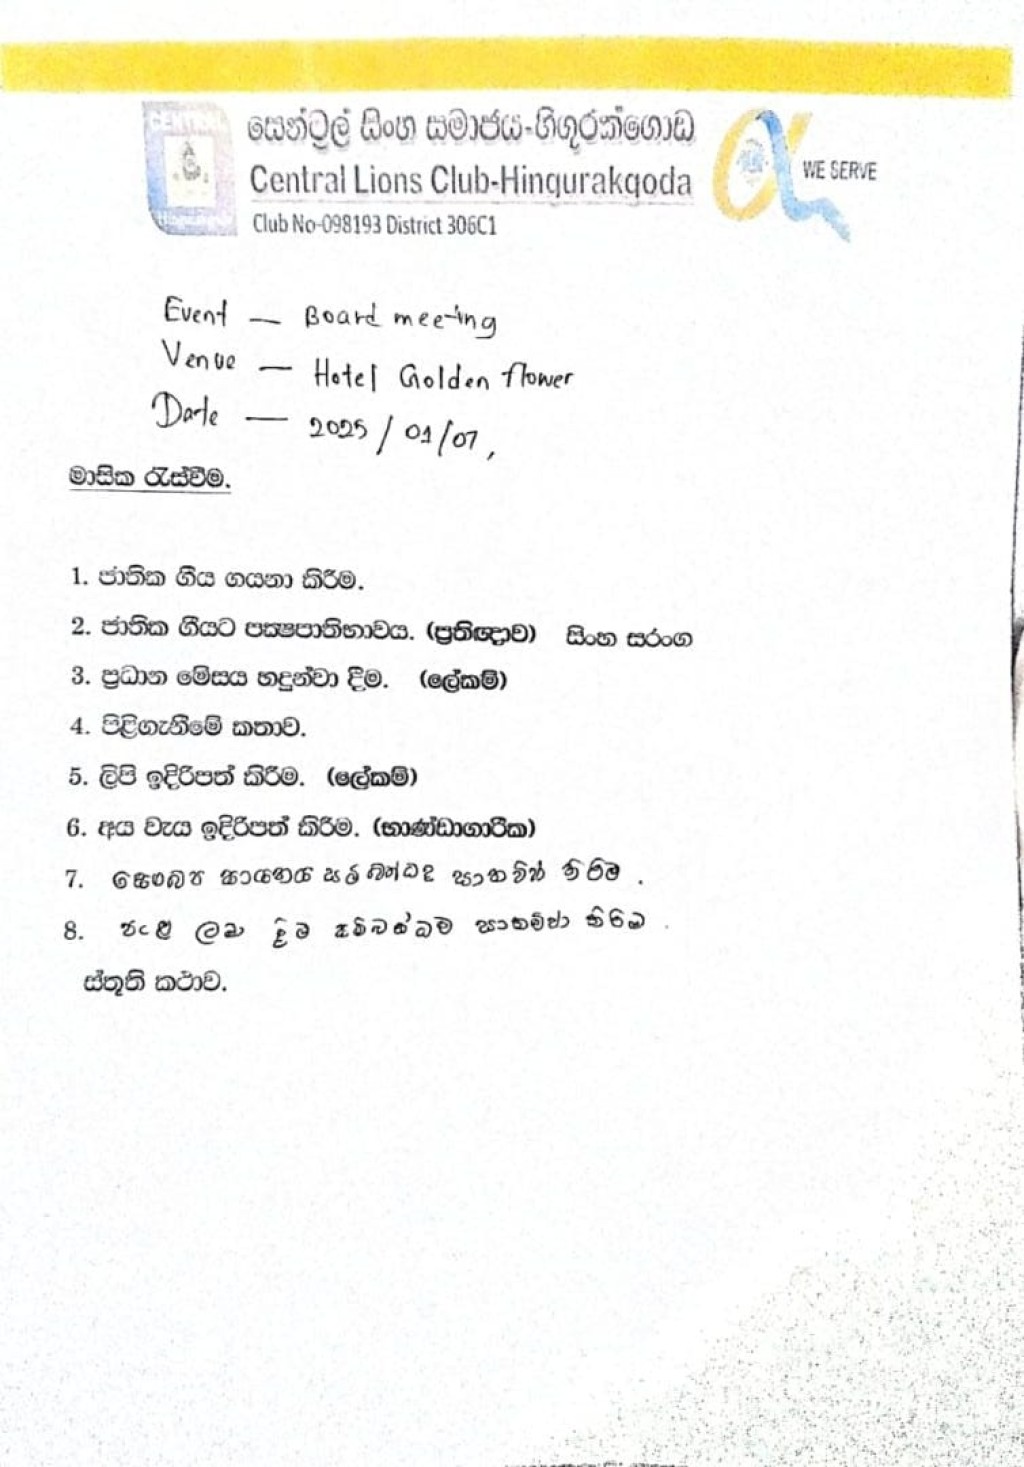 සෙන්ට්‍රල් සිංහ සමාජය-හිඟුරක්ගොඩ
CENTRAL
Central Lions Club-Hingurakgoda
WE SERVE
Club No-098193 District 306C1
Event — Board meeting
Venue — Hotel Golden flower
Date — 2025/01/07,
මාසික රැස්වීම.
1. ජාතික ගීය ගයනා කිරීම.
2. ජාතික ගීයට පක්‍ෂපාතිභාවය. (ප්‍රතිඥාව) සිංහ සරංග
3. ප්‍රධාන මේසය හඳුන්වා දීම. (ලේකම්)
4. පිළිගැනීමේ කතාව.
5. ලිපි ඉදිරිපත් කිරීම. (ලේකම්)
6. අය වැය ඉදිරිපත් කිරීම. (භාණ්ඩාගාරික)
7. සායනය කිරීම .
8. ලබා දීම සම්බන්ධව සාකච්ඡා කිරීම .
ස්තූති කථාව.